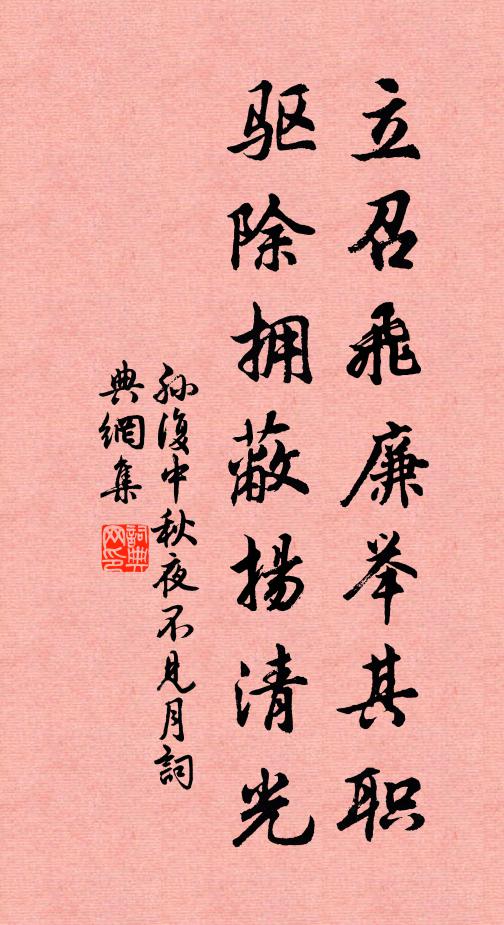 立召飛廉举其职
驱除拥蔽揚清光
孙復中秋夜不见月詞
典網集
詞典
网印